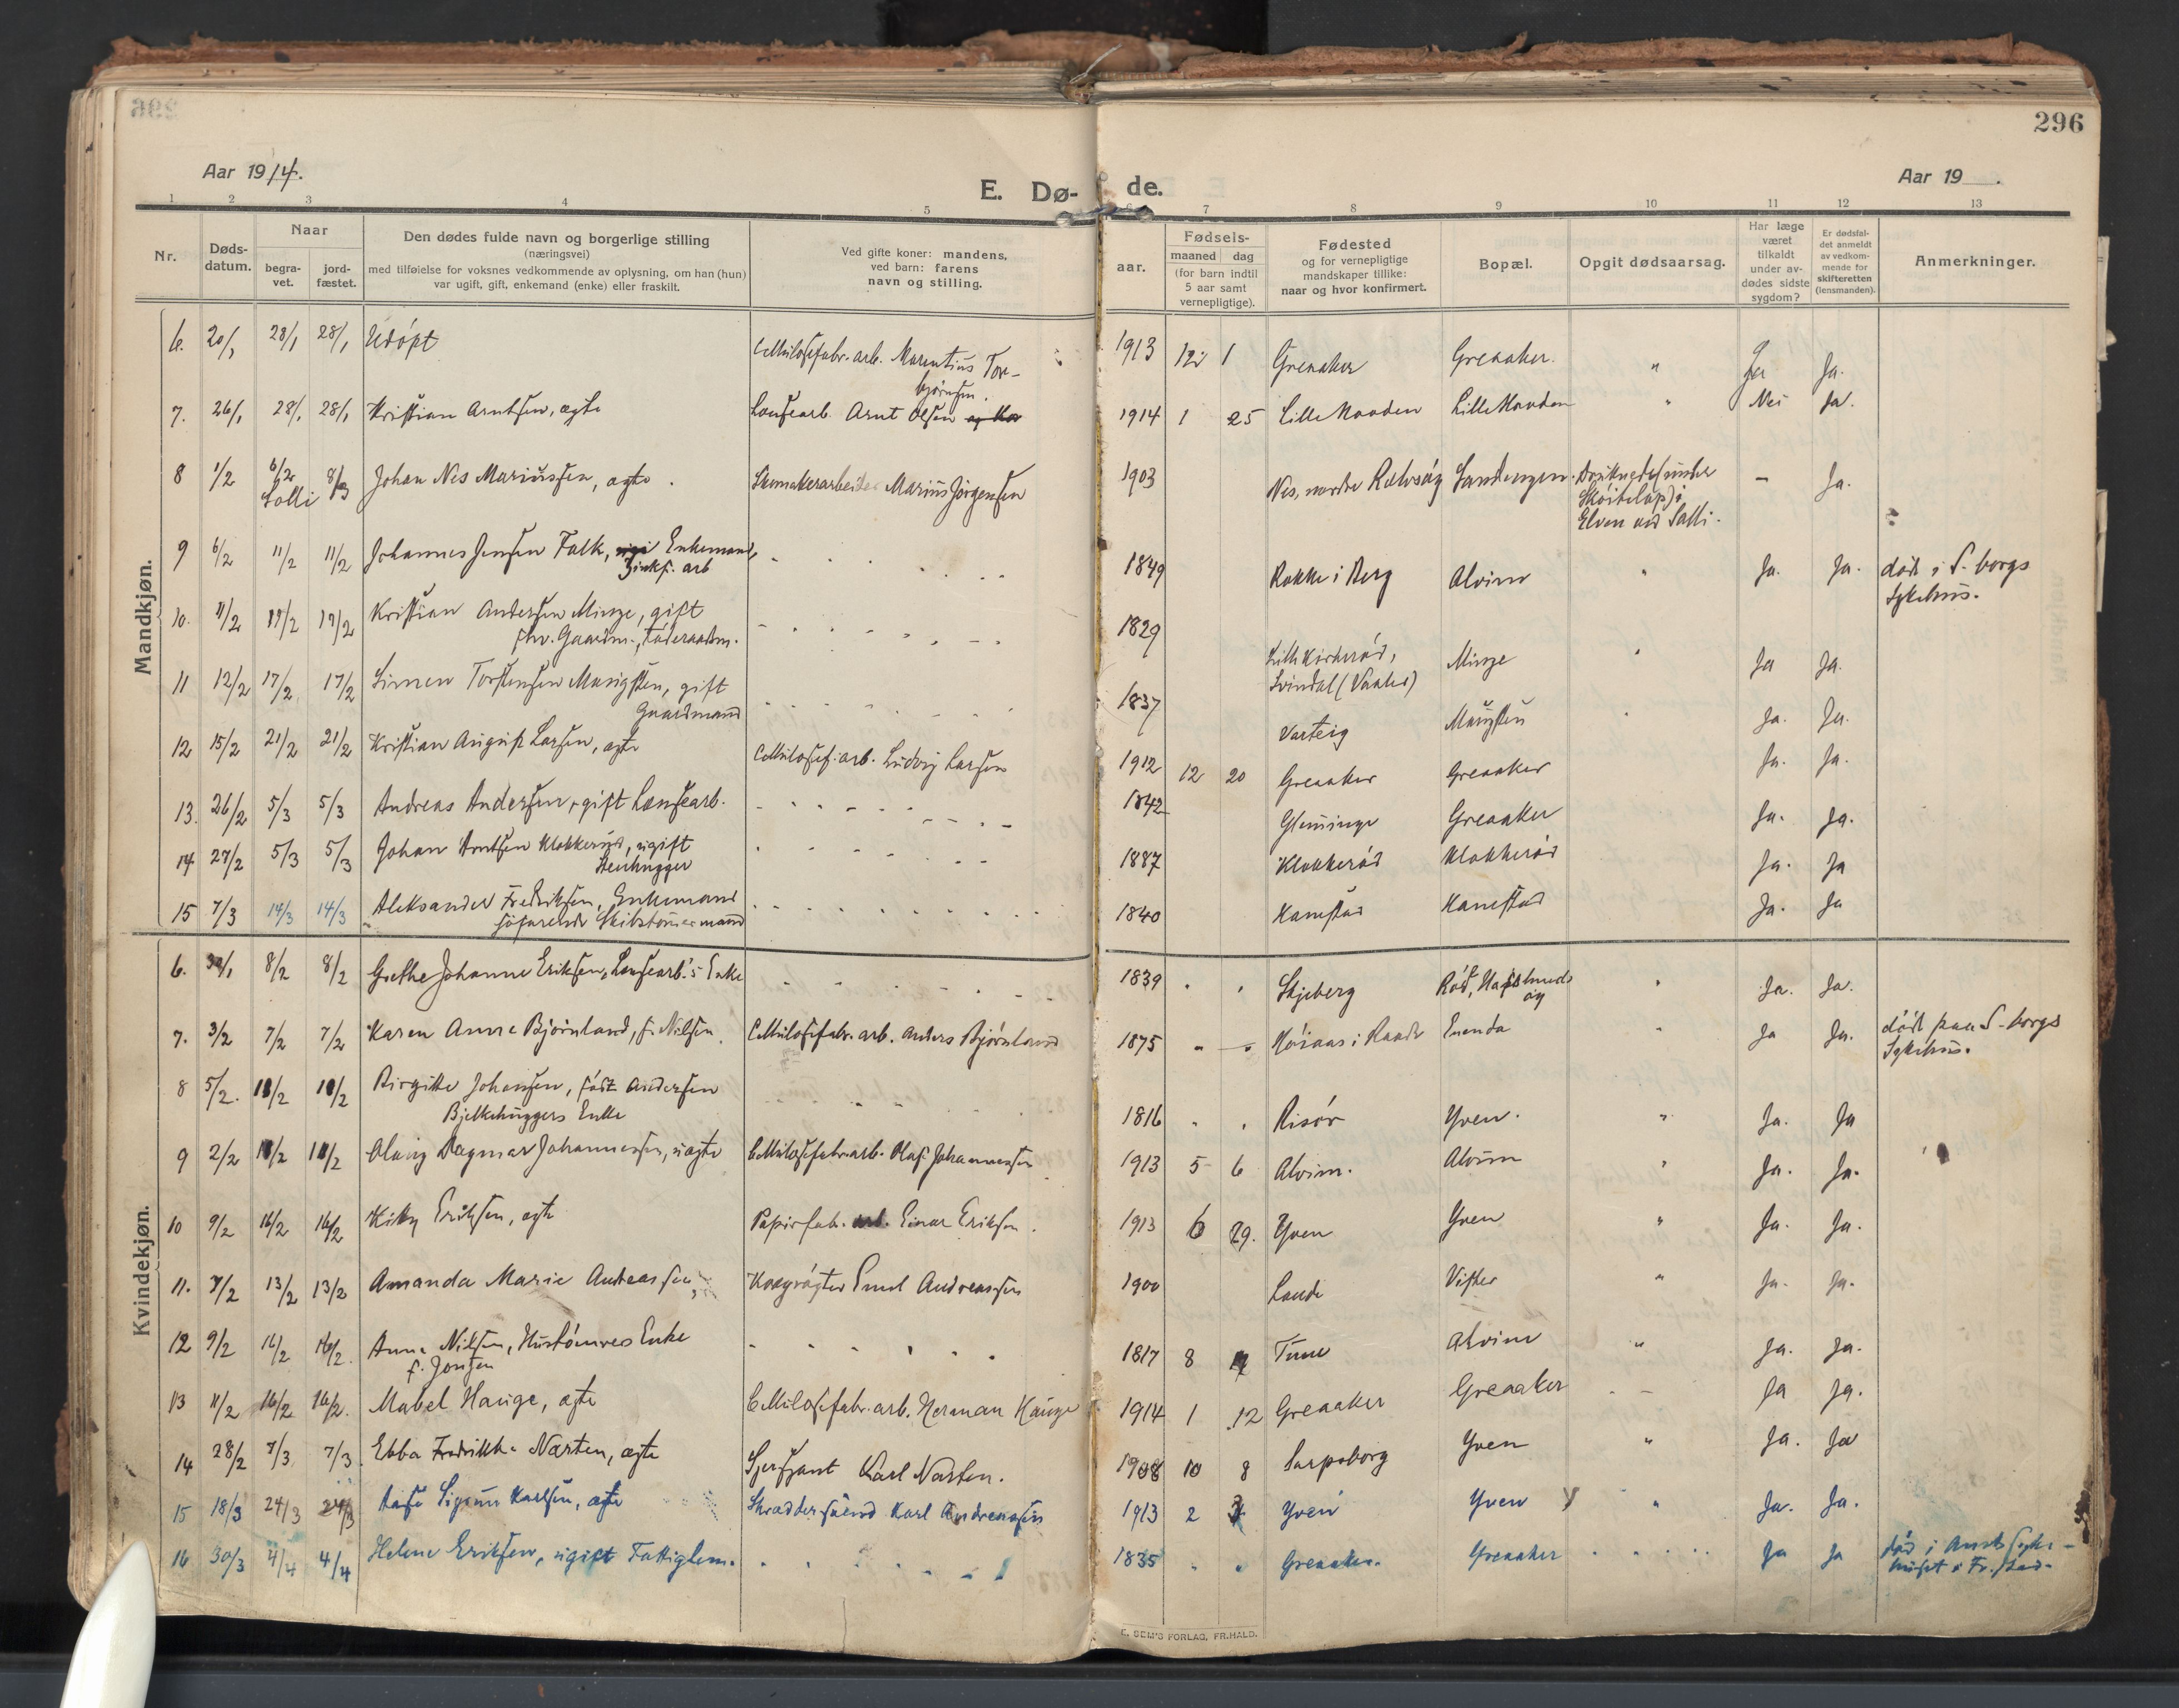 296
Aar 1914.
E. Dø-
de.
Aar 19 .
1 2 3 4 5 6 7 8 9 10 11 12 13
Nr.
Døds-
datum.
Naar
begra-
vet.
jord-
fæstet.
Den dødes fulde navn og borgerlige stilling
(næringsvei)
med tilføielse for voksnes vedkommende av oplysning, om han (hun)
var ugift, gift, enkemand (enke) eller fraskilt.
Ved gifte koner: mandens,
ved barn: farens
navn og stilling.
aar.
Fødsels-
maaned dag
(for barn indtil
5 aar samt
vernepligtige).
Fødested
og for vernepligtige
mandskaper tillike:
naar og hvor konfirmert.
Bopæl.
Opgit dødsaarsag.
Har læge
været
tilkaldt
under av-
dødes sidste
sygdom?
Er dødsfal-
det anmeldt
av vedkom-
mende for
skifteretten
(lensmanden).
Anmerkninger.
Mandkjøn.
6. 20/1 28/1 28/1 Udøpt Cellulosefabr. arb. Marentius Tor- 1913 12 1 Greaaker Greaaker. " Ja Ja.
bjørnsen.
7. 26/1 28/1 28/1 Kristian Arntsen, ægte Lænsearb. Arnt Olsen 1914 1 25 Lille Navden Lille Navden " Nei Ja.
8 1/2 6/2 8/3 Johan Nes Mariussen, ægte. Skomakerarbeider Marius Jørgensen 1903 Nes, nordre Rakvaag Sandengen. Druknede (under - Ja.
Solli
Skøiteløp) i
Elven ved Solli.
9 6/2 11/2 11/2 Johannes Jensen Falk, Enkemand, 1849 Rokke i Berg Alvim " Ja. Ja. død i S-borgs
Zinkf. arb
Sykehus.
10. 11/2 17/2 17/2 Kristian Andersen Minge, gift 1829 Lille Kirkerød, Minge " Ja Ja.
fhv. Gaardm., Føderaadsm.
Svindal (Vaaler)
11 12/2 17/2 17/2 Simen Torstensen Maugsten, gift 1837 Varteig Maugsten " Ja. Ja.
Gaardmand
12 15/2 21/2 21/2 Kristian August Larsen, ægte Cellulosef. arb. Ludvig Larsen 1912 12 20 Greaaker Greaaker Ja. Ja.
13. 26/2 5/3 5/3 Andreas Andersen, gift Lænsearb. 1842 Glemminge Greaaker Ja. Ja.
14 27/2 5/3 5/3 Johan Arntsen Klokkerød, ugift 1887 Klokkerød Klokkerød Ja. Ja
Stenhugger
15 7/3 14/3 14/3 Aleksander Fredriksen, Enkemand 1840 Kanestad Kanestad Ja. Ja
søfarende Skibstømmermand
Kvindekjøn.
6. 30/1 8/2 8/2 Grethe Johanne Eriksen, Lænsearb.'s Enke 1839 " " Skjeberg Rød, Hafslunds " Ja. Ja.
øy
7. 3/2 7/2 7/2 Karen Anna Bjørnland, f. Nilsen. Cellulosefabr. arb. Anders Bjørnland 1875 " " Høiaas i Raade Enenda " Ja Ja. død paa S-borgs
Sykehus.
8 5/2. 10/2 10/2 Birgitte Johansen, født Andersen 1816 " " Risør Yven. " Ja. Ja
Bjelkehuggers Enke
9 2/2 10/2 10/2 Olaug Dagmar Johannessen, uægte Cellulosefabr. arb. Olaf Johannessen 1913 5 6 Alvim. Alvim " Ja. Ja.
10 9/2 16/2 16/2 Kitty Eriksen, ægte Papirfab. arb. Einar Eriksen. 1913 6 29. Yven Yven " Ja. Ja.
11. 7/2 13/2 13/2 Amanda Marie Andreassen, Kvægrøgter Emil Andreassen 1900 Lande Vister " Ja. Ja.
12 9/2 16/2 16/2. Anna Nilsen, Hustømrers Enke 1817 8 Tune Alvim " Ja. Ja.
f. Jonsen
13 11/2 16/2 16/2. Mabel Hauge, ægte Cellulosefabr. arb. Herman Hauge 1914 1 12 Greaaker Greaaker " Ja Ja.
14 28/2 7/3 7/3 Ebba Fredrikke Narten, ægte Sjersjant Karl Narten. 1908 10 8 Sarpsborg Yven " Ja. Ja
15 18/3 24/3 24/3 Aase Sigrun Karlsen, ægte Skræddersvend Karl Andreassen 1913 2 Yven Yven " Ja. Ja.
16 30/3 4/4 4/4 Helene Eriksen, ugift Fattiglem. 1835 " " Greaaker. Greaaker Ja Ja død i Amtssyke-
huset i Fr.stad.
E. SEM'S FORLAG, FR.HALD.